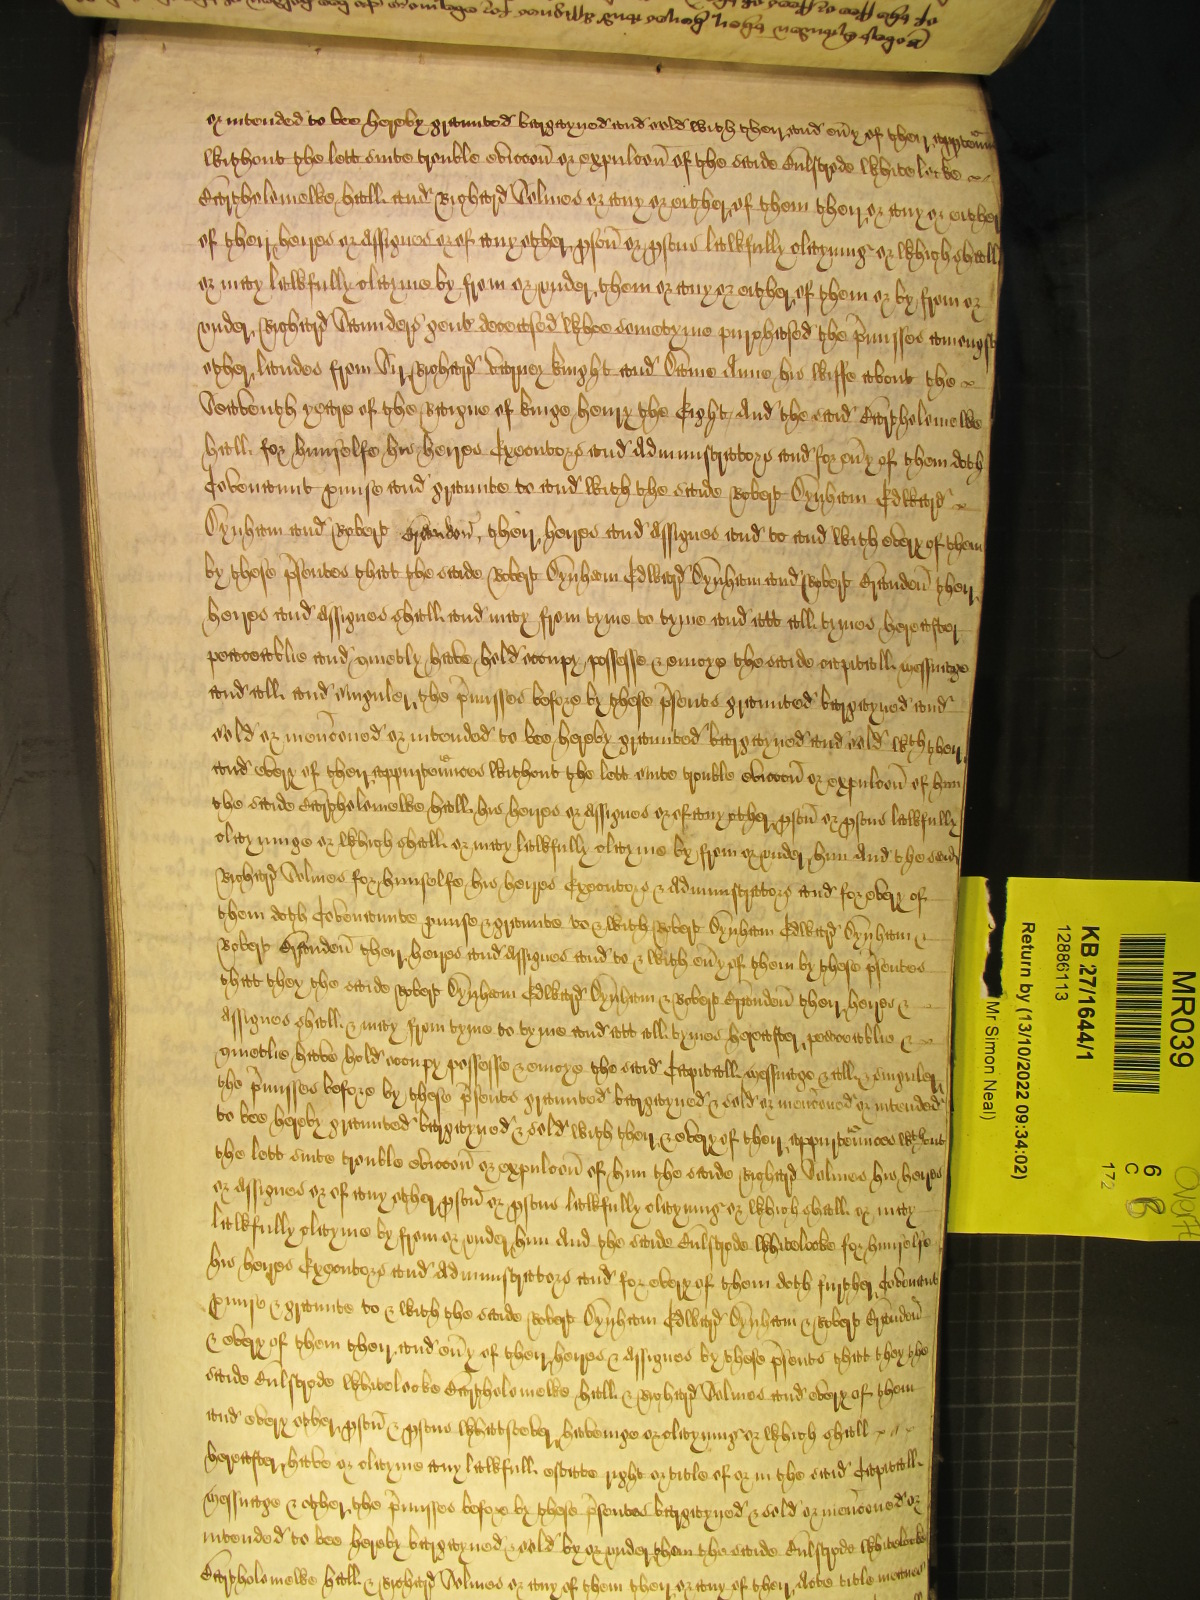 or intended to bee hereby graunted bargayned and sold with their and eũy of their apptenñ
without the lett suite trouble evicc̃on or expulc̃on of the saide Bulstrode Whitelocke
Bartholomewe Hall and Richard Holmes or any or either of them their or any or either
of their heires or assignes or of any other p̱son̄ or p̱sons lawfully clayming or which shall
or may lawfully clayme by from or vnder them or any or either of them or by from or
vnder Richard Saunders gent deceased whoe sometyme purchased the p̄misses amongst
other landes from Sir Richard knight and Dame Anne his wiffe about the
yeare of the Raigne of kinge Henry the Eight And the said Bartholomewe
Hall for himselfe his heires Executors and Administrators and for eũy of them doth
Covenaunt p̱mise and graunte to and with the saide Robert Dynham Edward
Dynham and Robert their heires and assignes and to and with every of them
by these p̄sentes thatt the saide Robert Dynham Edward Dynham and Robert their
heires and assignes shall and may from tyme to tyme and att all tymes hereafter
peaceablie and quietly have hold occupy possesse & enioye the saide capitall messuage
and all and singuler the p̄misses before by these p̄sents graunted bargayned and
sold or menc̃oned or intended to bee hereby graunted bargayned and sold wth their
and every of their appurteñnces without the lett suite trouble evicc̃on or expulc̃on of him
the saide Bartholomewe Hall his heires or assignes or of any other p̱son̄ or p̱sons lawfully
clayminge or which shall or may lawfully clayme by from or vnder him And the said
Richard Holmes for himselfe his heires Executors & Administrators and for every of
them doth Covenaunte p̱mise & graunte to & with Robert Dynham Edward Dynham &
Robert their heires and assignes and to & with eũy of them by these p̄sentes
thatt they the saide Robert Dynham Edward Dynham & Robert their heires &
assignes shall & may from tyme to tyme and att all tymes hereafter peaceablie &
quietlie have hold occupy possesse & enioye the said Capitall messuage & all & singuler
the p̄misses before by these p̄sents graunted bargayned & sold or menc̃oned or intended
to bee hereby graunted bargayned & sold with their & every of their appurteñnces wthout
the lett suite trouble evicc̃on or expulc̃on of him the saide Richard Holmes his heires
or assignes or of any other p̱son̄ or p̱sons lawfully clayming or which shall or may
lawfully clayme by from or vnder him And the saide Bulstrode Whitelocke for himselfe
his heires Executors and Administrators and for every of them doth further Covenaunt
p̱mise & graunte to & with the saide Robert Dynham Edward Dynham & Robert
& every of them their and eũy of their heires & assignes by these p̄sents thatt they the
saide Bulstrode Whitelocke Bartholomewe Hall & Richard Holmes and every of them
and every other p̱son̄ & p̱sons whatsoever haveinge or clayming or which shall
hereafter have or clayme any lawfull estate right or title of or in the said Capitall
messuage & other the p̄misses before by these p̄sentes bargayned & sold or menc̃oned or
intended to bee hereby bargayned & sold by or vnder them the saide Bulstrode Whitelocke
Bartholomewe Hall & Richard Holmes or any of them their or any of their Acte title meanes
MR039
KB 27/1644/1
12886113
Return by (13/10/2022 09:34:02)
Mr Simon Neal)
6
C
172